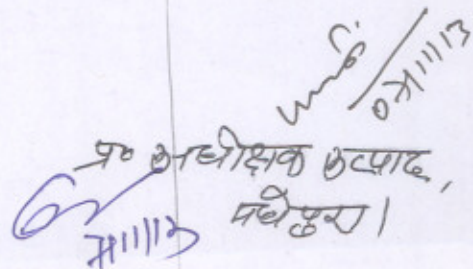 07/11/13
प्र० अधीक्षक उत्पाद,
मधेपुरा।
7/11/13